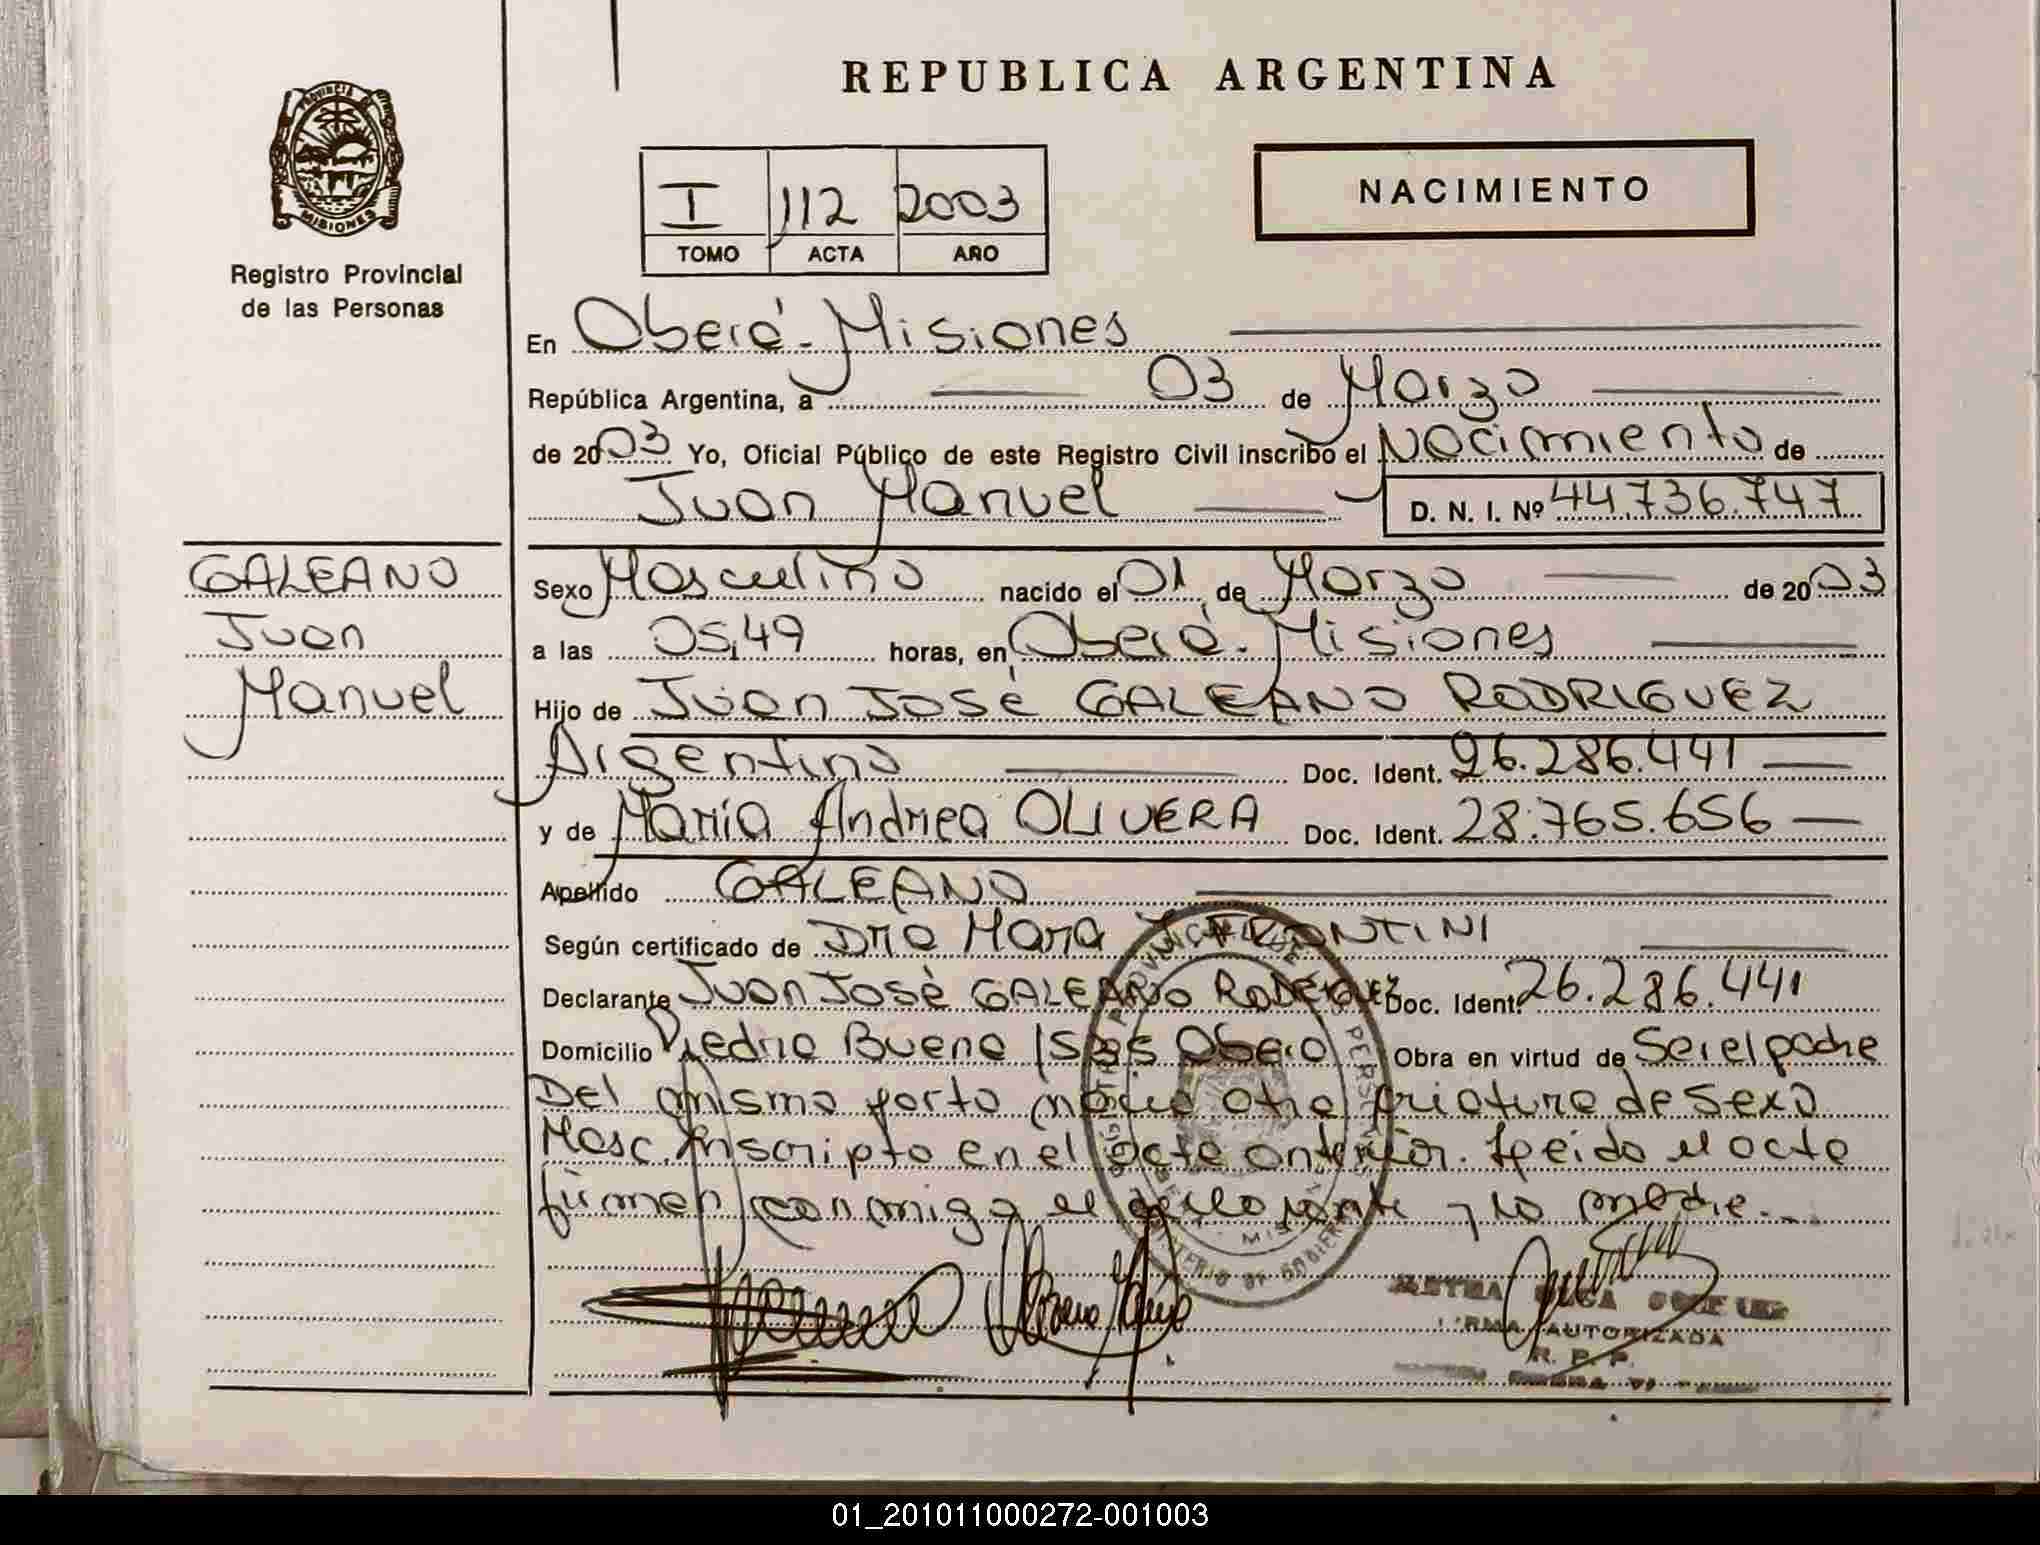 REPUBLICA ARGENTINA
PROVINCIA DE
MISIONES
Registro Provincial
de las Personas
I 112 2003
TOMO ACTA AÑO
NACIMIENTO
En Oberá - Misiones
República Argentina, a 03 de Marzo
de 2003 Yo, Oficial Público de este Registro Civil inscribo el Nacimiento de
Juan Manuel D. N. I. Nº 44.736.747
GALEANO
Juan
Manuel
Sexo Masculino nacido el 01 de Marzo de 2003
a las 05,49 horas, en Oberá - Misiones
Hijo de Juan José GALEANO RODRIGUEZ
Argentino Doc. Ident. 26.286.441
y de María Andrea OLIVERA Doc. Ident. 28.765.656
Apellido GALEANO
Según certificado de Dra María FRONTINI
Declarante Juan José GALEANO RODRIGUEZ Doc. Ident. 26.286.441
Domicilio Piedra Buena Oberá Obra en virtud de Ser el padre
Del mismo parto nació otra criatura de sexo
Masc. Inscripto en el acta anterior. Leida el acta
firman conmigo el declarante y la madre.
OLGA
FIRMA AUTORIZADA
R. P. P.
01_201011000272-001003